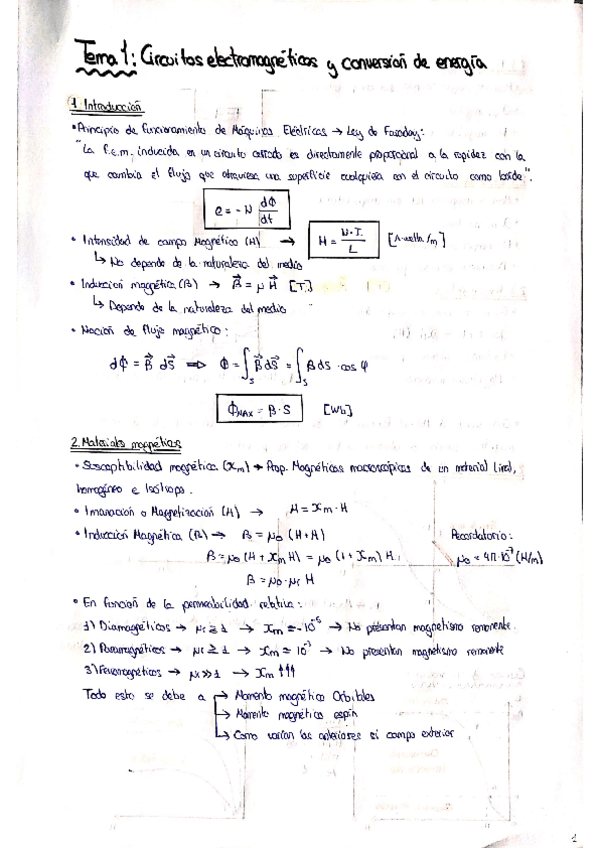 Tema 1: Circuitos electromagnéticos y conversión de energía
1. Introducción
• Principio de funcionamiento de Máquinas Eléctricas → Ley de Faraday:
"La f.e.m. inducida en un circuito cerrado es directamente proporcional a la rapidez con la
que cambia el flujo que atraviesa una superficie cualquiera con el circuito como borde".
e = - N dΦ/dt
• Intensidad de campo Magnético (H) → H = N·I/L [A·vuelta/m]
↳ No depende de la naturaleza del medio
• Inducción magnética (B) → B⃗ = μ H⃗ [T]
↳ Depende de la naturaleza del medio
• Noción de flujo magnético:
dΦ = B⃗ dS⃗ ⇒ Φ = ∫s B⃗ dS⃗ = ∫s B dS · cos φ
ΦMAX = B · S [Wb]
2. Materiales magnéticos
• Susceptibilidad magnética (Xm) → Prop. Magnéticas macroscópicas de un material lineal,
homogéneo e Isótropo.
• Imanación o Magnetización (M) → M = Xm · H
• Inducción Magnética (B) → B = μ0 (H+M) Recordatorio:
B = μ0 (H + Xm H) = μ0 (1 + Xm) H μ0 = 4π·10⁻⁷ (H/m)
B = μ0 · μr H
• En función de la permeabilidad relativa:
1) Diamagnéticos → μr ≅ 1 → Xm ≅ -10⁻⁵ → No presentan magnetismo remanente.
2) Paramagnéticos → μr ≥ 1 → Xm ≅ 10⁻³ → No presentan magnetismo remanente
3) Ferromagnéticos → μr >> 1 → Xm ↑↑↑
Todo esto se debe a → Momento magnético Orbitales
→ Momento magnético espín
→ Como varían los anteriores si campo exterior
1